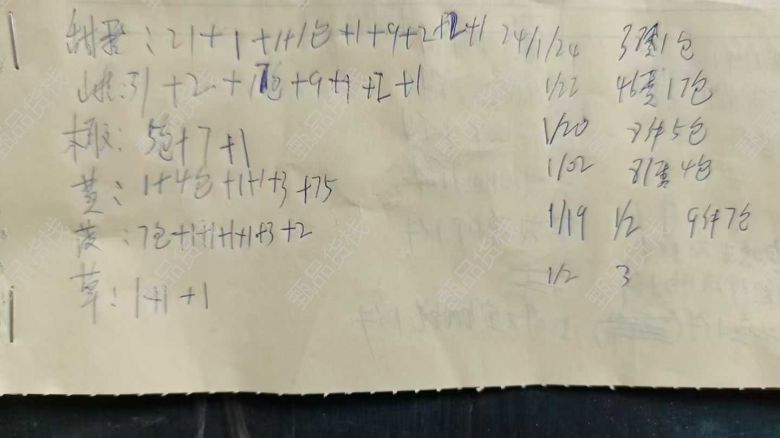 甜蜜：21+1+1+1包+1+9+2+2+1 24/1/24 37隻1包
山楂：31+2+17包+9+1+2+1 1/22 46隻17包
橄：5包+7+1 1/20 8件5包
黄：1+4包+1+1+3+75 1/02 81隻4包
菠：7包+1+1+1+1+3+2 1/19 1/2 9件7包
草：1+1+1 1/2 3